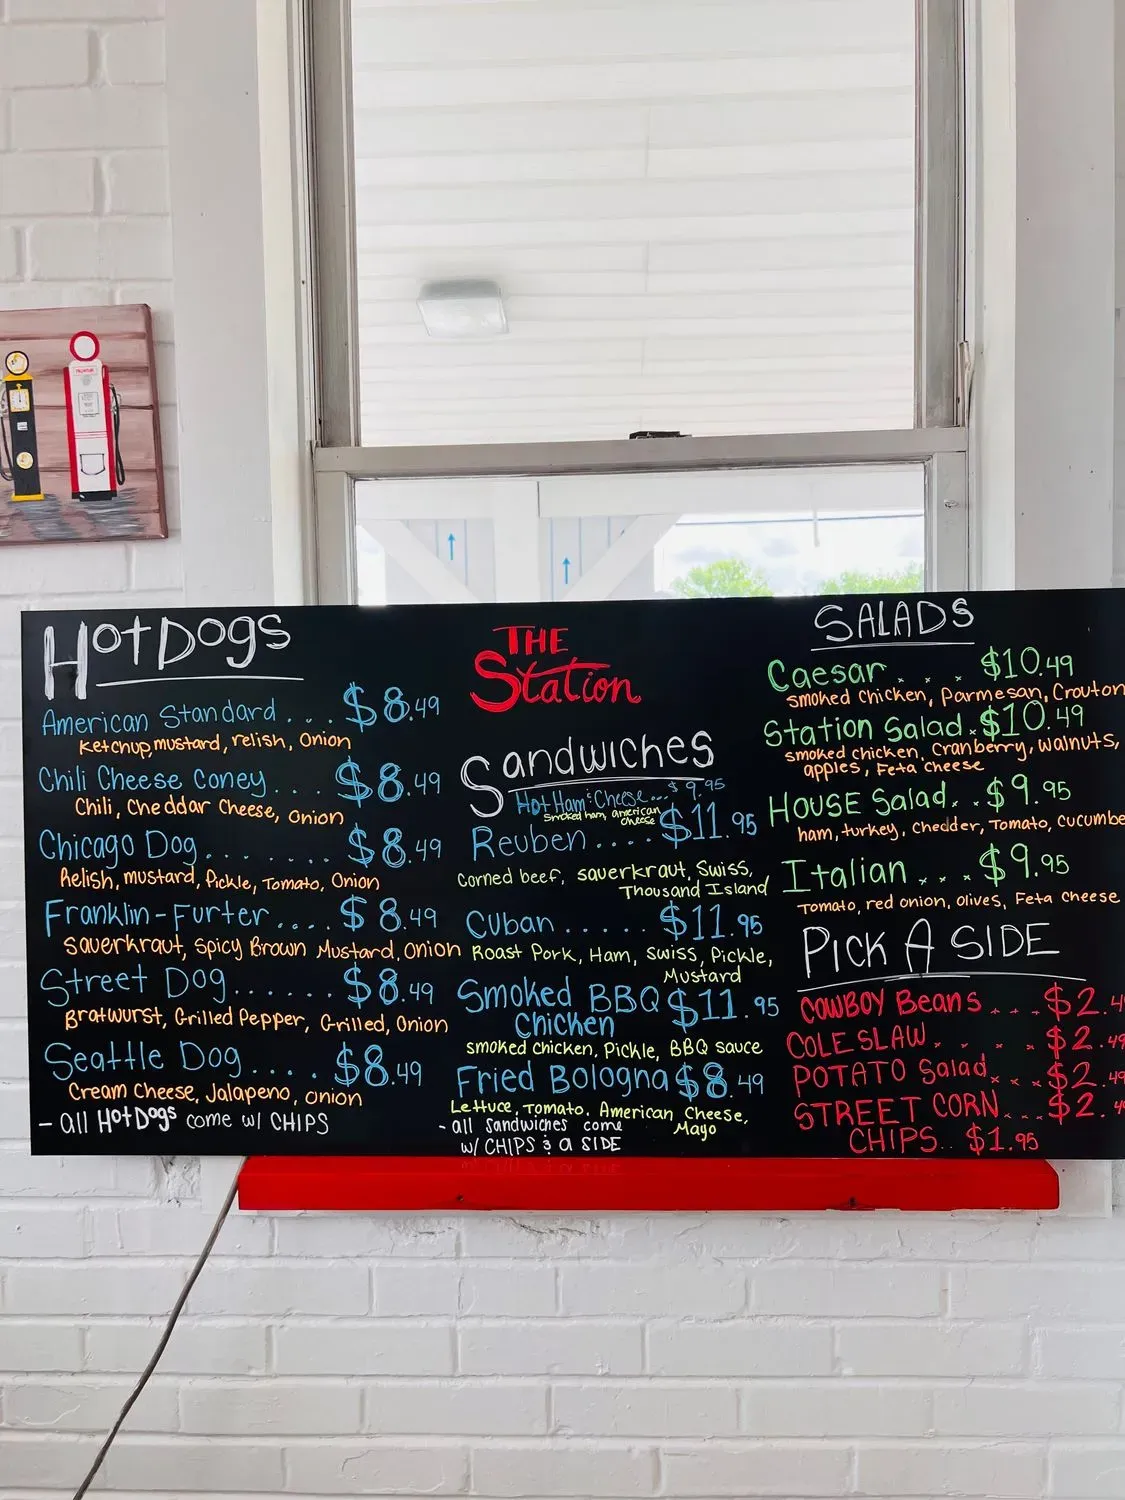 HotDogs
American Standard . . . $8.49
Ketchup, mustard, relish, Onion
Chili Cheese Coney . . . $8.49
Chili, Cheddar Cheese, Onion
Chicago Dog . . . . . . . . $8.49
Relish, mustard, Pickle, Tomato, Onion
Franklin-Furter . . . . $8.49
Sauerkraut, Spicy Brown Mustard, Onion
Street Dog . . . . . . $8.49
Bratwurst, Grilled Pepper, Grilled, Onion
Seattle Dog . . . . $8.49
Cream Cheese, Jalapeno, onion
- all HotDogs come w/ CHIPS
THE
Station
Sandwiches
Hot Ham & Cheese... $9.95
Smoked ham, american
cheese
Reuben . . . . $11.95
Corned beef, sauerkraut, Swiss,
Thousand Island
Cuban . . . . . $11.95
Roast Pork, Ham, Swiss, Pickle,
Mustard
Smoked BBQ $11.95
Chicken
smoked chicken, Pickle, BBQ sauce
Fried Bologna $8.49
Lettuce, Tomato, American Cheese,
Mayo
- all Sandwiches come
w/ CHIPS & a SIDE
SALADS
Caesar . . . $10.49
smoked chicken, Parmesan, Crouton
Station Salad . $10.49
smoked chicken, Cranberry, walnuts,
apples, Feta Cheese
HOUSE Salad . . $9.95
ham, turkey, chedder, Tomato, cucumbe
Italian . . . $9.95
Tomato, red onion, olives, Feta cheese
PICK A SIDE
COWBOY Beans . . . $2.49
COLE SLAW . . . . $2.49
POTATO Salad . . . $2.49
STREET CORN . . . $2.4
CHIPS.. $1.95